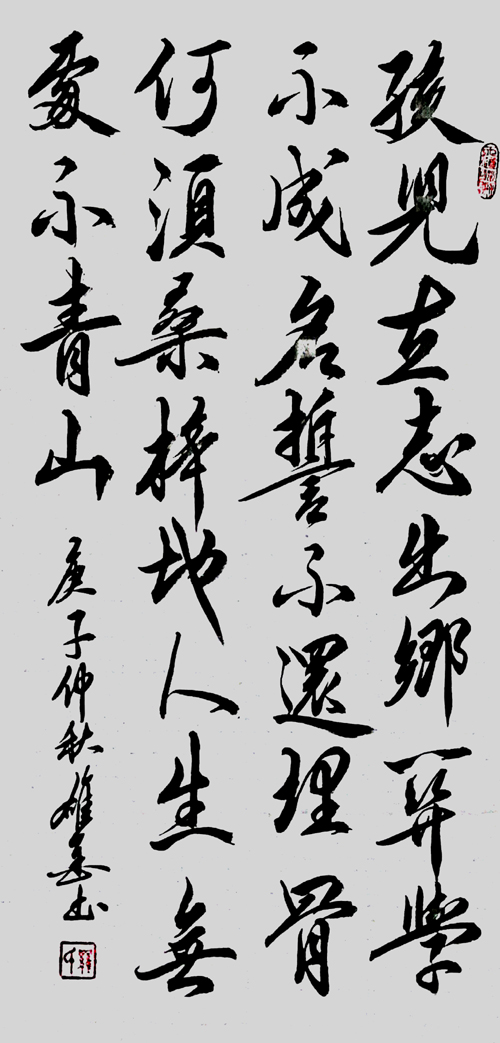 孩兒立志出鄉關學
不成名誓不還埋骨
何須桑梓地人生無
處不青山
庚子仲秋雄书